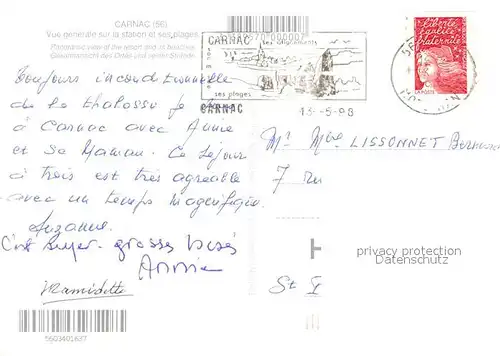 CARNAC (56)
Vue générale sur la station et ses plages
Panoramic view of the resort and its beaches
Gesamtansicht des Ortes und seiner Strände
70 000007
CARNAC ses alignements
ses plages
CARNAC
13-5-98
Liberté
égalité
Fraternité
LA POSTE
Toujours inconditionnelle
de la thalasso je
à Carnac avec Annie
et Sa Maman. Le séjour
à trois est très agréable
avec un temps magnifique
Suzanne.
C'est super. grosses bises
Annie
Mamidette
Mr Mme LISSONNET
7 rue
St
privacy protection
Datenschutz
5603401827